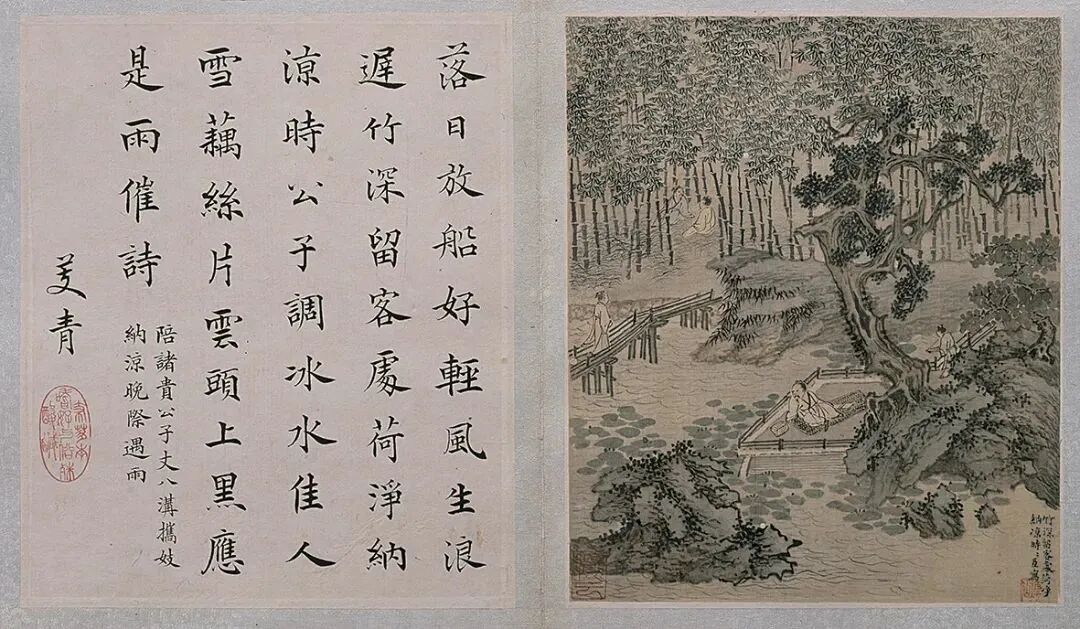 落日放船好輕風生浪
遲竹深留客處荷淨納
涼時公子調冰水佳人
雪藕絲片雲頭上黑應
是雨催詩
陪諸貴公子丈八溝攜妓
納涼晚際遇雨
青
竹深留客處荷淨
納涼時